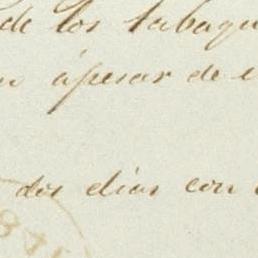 de los tabaqu
apesar de e
dos dias con